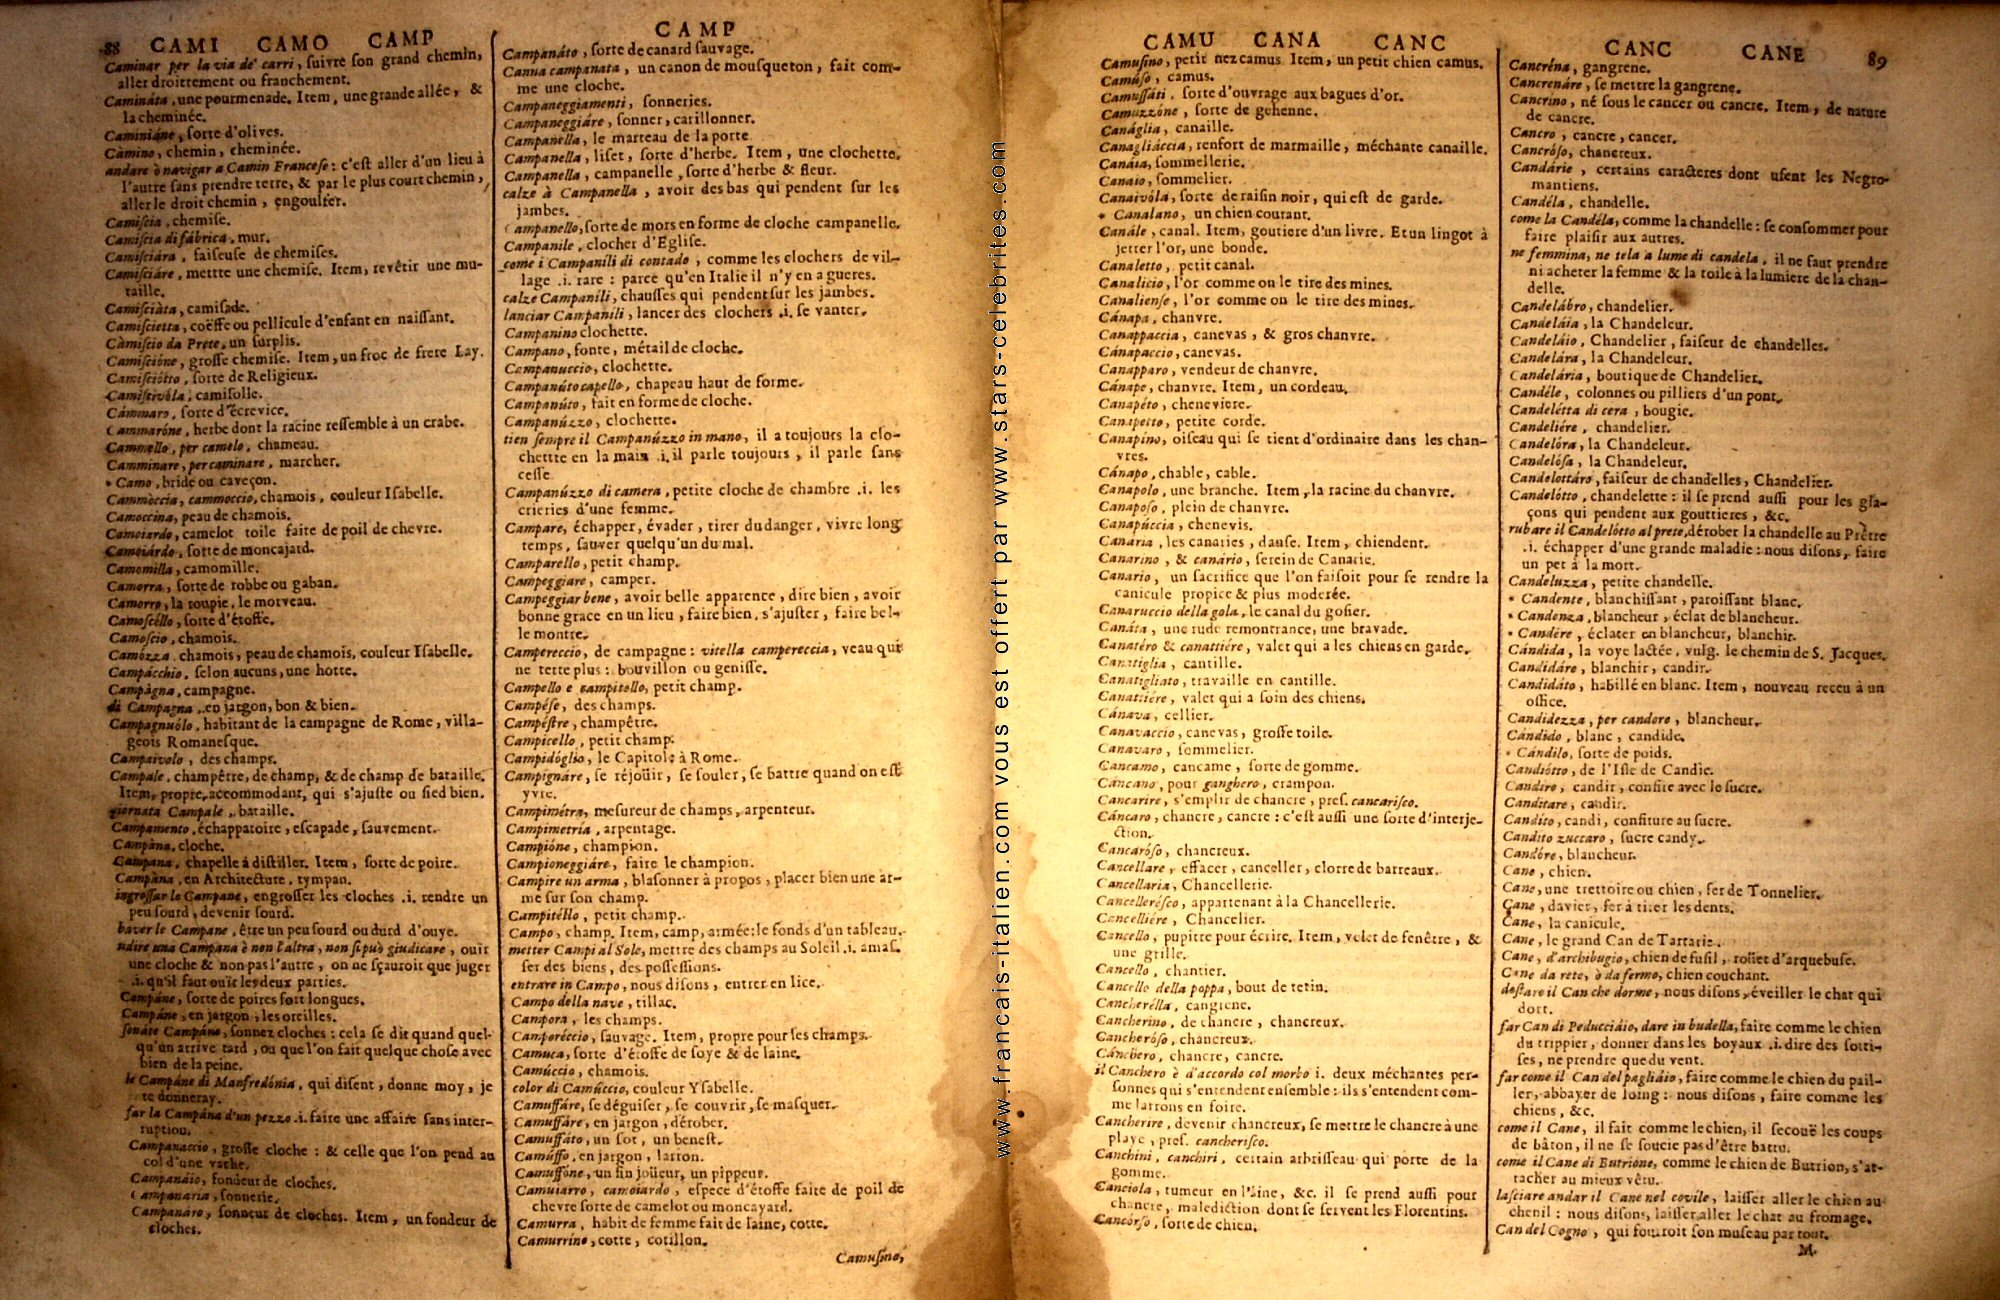 88 CAMI CAMO CAMP
Caminar per la via de' carri, suivre son grand chemin,
aller droittement ou franchement.
Camináta, une pourmenade. Item, une grande allée, &
la cheminée.
Caminiáne, sorte d'olives.
Càmino, chemin, cheminée.
andare ò navigar a Camin Francese : c'est aller d'un lieu à
l'autre sans prendre terre, & par le plus court chemin,
aller le droit chemin, engoulfer.
Camíscia, chemise.
Camíscia di fábrica, mur.
Camisciára, faiseuse de chemises.
Camisciáre, mettre une chemise. Item, revêtir une mu-
raille.
Camisciàta, camisade.
Camiscietta, coëffe ou pellicule d'enfant en naissant.
Càmiscio da Prete, un surplis.
Camiscióne, grosse chemise. Item, un froc de frere Lay.
Camisciótto, sorte de Religieux.
Camistivóla, camisolle.
Cámmaro, sorte d'écrevice.
Cammaróne, herbe dont la racine ressemble à un crabe.
Cammello, per camelo, chameau.
Camminare, per caminare, marcher.
* Camo, bride ou caveçon.
Cammòccia, cammoccio, chamois, couleur Isabelle.
Camoccina, peau de chamois.
Camoiardo, camelot toile faite de poil de chevre.
Camoiárdo, sorte de moncajard.
Camomilla, camomille.
Camorra, sorte de robbe ou gaban.
Camorro, la toupie, le morveau.
Camoscéllo, sorte d'étoffe.
Camoscio, chamois.
Camózza, chamois, peau de chamois, couleur Isabelle.
Campácchio, selon aucuns, une hotte.
Campàgna, campagne.
di Campagna, en jargon, bon & bien.
Campagnuólo, habitant de la campagne de Rome, villa-
geois Romanesque.
Campaivolo, des champs.
Campale, champêtre, de champ, & de champ de bataille.
Item, propre, accommodant, qui s'ajuste ou sied bien.
giornata Campale, bataille.
Campamento, échappatoire, escapade, sauvement.
Campàna, cloche.
Campana, chapelle à distiller. Item, sorte de poire.
Campàna, en Architecture, tympan.
ingrossar le Campane, engrosser les cloches .i. rendre un
peu sourd, devenir sourd.
haver le Campane, être un peu sourd ou durd d'ouye.
udire una Campana è non l'altra, non si può giudicare, ouir
une cloche & non pas l'autre, on ne sçauroit que juger
.i. qu'il faut ouïr les deux parties.
Campáne, sorte de poires fort longues.
Campáne, en jargon, les oreilles.
sonáte Campáne, sonnez cloches : cela se dit quand quel-
qu'un arrive tard, ou que l'on fait quelque chose avec
bien de la peine.
le Campáne di Manfredónia, qui disent, donne moy, je
te donneray.
far la Campána d'un pezzo .i. faire une affaire sans inter-
ruption.
Campanaccio, grosse cloche : & celle que l'on pend au
col d'une vache.
Campanáio, fondeur de cloches.
Campanaria, sonnerie.
Campanáro, sonneur de cloches. Item, un fondeur de
cloches.
CAMP
Campanáto, sorte de canard sauvage.
Canna campanata, un canon de mousqueton, fait com-
me une cloche.
Campaneggiamenti, sonneries.
Campaneggiáre, sonner, carillonner.
Campanella, le marteau de la porte
Campanella, liset, sorte d'herbe. Item, une clochette.
Campanella, campanelle, sorte d'herbe & fleur.
calze à Campanella, avoir des bas qui pendent sur les
jambes.
Campanello, sorte de mors en forme de cloche campanelle.
Campanile, clocher d'Eglise.
come i Campanili di contado, comme les clochers de vil-
lage .i. rare : parce qu'en Italie il n'y en a gueres.
calze Campanili, chausses qui pendent sur les jambes.
lanciar Campanili, lancer des clochers .i. se vanter.
Campanino clochette.
Campano, fonte, métail de cloche.
Campanuccio, clochette.
Campanúto capello, chapeau haut de forme.
Campanúto, fait en forme de cloche.
Campanúzzo, clochette.
tien sempre il Campanúzzo in mano, il a toujours la clo-
chette en la main .i. il parle toujours, il parle sans
cesse
Campanúzzo di camera, petite cloche de chambre .i. les
crieries d'une femme.
Campare, échapper, évader, tirer du danger, vivre long
temps, sauver quelqu'un du mal.
Camparello, petit champ.
Campeggiare, camper.
Campeggiar bene, avoir belle apparence, dire bien, avoir
bonne grace en un lieu, faire bien, s'ajuster, faire bel-
le montre.
Campereccio, de campagne : vitella campereccia, veau qui
ne terte plus : bouvillon ou genisse.
Campello e campitello, petit champ.
Campése, des champs.
Campéstre, champêtre.
Campicello, petit champ.
Campidóglio, le Capitole à Rome.
Campignáre, se réjoüir, se souler, se battre quand on est
yvre.
Campimétra, mesureur de champs, arpenteur.
Campimetria, arpentage.
Campióne, champion.
Campioneggiáre, faire le champion.
Campire un arma, blasonner à propos, placer bien une ar-
me sur son champ.
Campitéllo, petit champ.
Campo, champ. Item, camp, armée : le fonds d'un tableau.
metter Campi al Sole, mettre des champs au Soleil .i. amas-
ser des biens, des possessions.
entrare in Campo, nous disons, entrer en lice.
Campo della nave, tillac.
Campora, les champs.
Camporéccio, sauvage. Item, propre pour les champs.
Camuca, sorte d'étoffe de soye & de laine.
Camúccio, chamois.
color di Camúccio, couleur Ysabelle.
Camuffáre, se déguiser, se couvrir, se masquer.
Camuffáre, en jargon, dérober.
Camuffáto, un sot, un benest.
Camúffo, en jargon, larron.
Camuffóne, un fin joüeur, un pippeur.
Camuiarro, camoiardo, espece d'étoffe faite de poil de
chevre sorte de camelot ou moncayard.
Camurra, habit de femme fait de laine, cotte.
Camurrino, cotte, cotillon.
Camusino,
www.francais-italien.com vous est offert par www.stars-celebrites.com
CAMU CANA CANC
Camusino, petit nez camus. Item, un petit chien camus.
Camúso, camus.
Camussáti, sorte d'ouvrage aux bagues d'or.
Camuzzóne, sorte de gehenne.
Canáglia, canaille.
Canagliáccia, renfort de marmaille, méchante canaille.
Canáia, sommellerie.
Canaio, sommelier.
Canaivóla, sorte de raisin noir, qui est de garde.
* Canalano, un chien courant.
Canále, canal. Item, goutiere d'un livre. Et un lingot à
jetter l'or, une bonde.
Canaletto, petit canal.
Canalicio, l'or comme on le tire des mines.
Canaliense, l'or comme on le tire des mines.
Cánapa, chanvre.
Canappaccia, canevas, & gros chanvre.
Cánapaccio, canevas.
Canapparo, vendeur de chanvre.
Cánape, chanvre. Item, un cordeau.
Canapéto, cheneviere.
Canapetto, petite corde.
Canapino, oiseau qui se tient d'ordinaire dans les chan-
vres.
Cánapo, chable, cable.
Canapolo, une branche. Item, la racine du chanvre.
Canaposo, plein de chanvre.
Canapúccia, chenevis.
Canária, les canaries, danse. Item, chiendent.
Canarino, & canário, serein de Canarie.
Canario, un sacrifice que l'on faisoit pour se rendre la
canicule propice & plus moderée.
Canaruccio della gola, le canal du gosier.
Canáta, une rude remontrance, une bravade.
Canatéro & canattiére, valet qui a les chiens en garde.
Canatiglia, cantille.
Canatigliato, travaille en cantille.
Canattiére, valet qui a soin des chiens.
Cánava, cellier.
Canavaccio, canevas, grosse toile.
Canavaro, sommelier.
Cancamo, cancame, sorte de gomme.
Cáncano, pour ganghero, crampon.
Cancarire, s'emplir de chancre, pres. cancarisco.
Cáncaro, chancre, cancre : c'est aussi une sorte d'interje-
ction.
Cancaróso, chancreux.
Cancellare, effacer, canceller, clorre de barreaux.
Cancellaria, Chancellerie.
Cancellerésco, appartenant à la Chancellerie.
Cancelliére, Chancelier.
Cancello, pupitre pour écrire. Item, volet de fenêtre, &
une grille.
Cancello, chantier.
Cancello della poppa, bout de tetin.
Cancherélla, cangrene.
Cancherino, de chancre, chancreux.
Cancheróso, chancreux.
Cánchero, chancre, cancre.
il Canchero è d'accordo col morbo i. deux méchantes per-
sonnes qui s'entendent ensemble : ils s'entendent com-
me larrons en foire.
Cancherire, devenir chancreux, se mettre le chancre à une
playe, pres. cancherisco.
Canchini, canchiri, certain arbrisseau qui porte de la
gomme.
Canciola, tumeur en l'aine, &c. il se prend aussi pour
chancre, malediction dont se servent les Florentins.
Cancórso, sorte de chien.
CANC CANE 89
Cancréna, gangrene.
Cancrenáre, se mettre la gangrene.
Cancrino, né sous le cancer ou cancre. Item, de nature
de cancre.
Cancro, cancre, cancer.
Cancróso, chancreux.
Candárie, certains caracteres dont usent les Negro-
mantiens.
Candéla, chandelle.
come la Candéla, comme la chandelle : se consommer pour
faire plaisir aux autres.
ne femmina, ne tela a lume di candela, il ne faut prendre
ni acheter la femme & la toile à la lumiere de la chan-
delle.
Candelábro, chandelier.
Candeláia, la Chandeleur.
Candeláio, Chandelier, faiseur de chandelles.
Candelára, la Chandeleur.
Candelária, boutique de Chandelier.
Candéle, colonnes ou pilliers d'un pont.
Candelétta di cera, bougie.
Candeliére, chandelier.
Candelóra, la Chandeleur.
Candelósa, la Chandeleur.
Candelottáro, faiseur de chandelles, Chandelier.
Candelótto, chandelette : il se prend aussi pour les gla-
çons qui pendent aux gouttieres, &c.
rubare il Candelótto al prete, dérober la chandelle au Prêtre
.i. échapper d'une grande maladie : nous disons, faire
un pet à la mort.
Candeluzza, petite chandelle.
* Candente, blanchissant, paroissant blanc.
* Candenza, blancheur, éclat de blancheur.
* Candére, éclater en blancheur, blanchir.
Cándida, la voye lactée, vulg. le chemin de S. Jacques.
Candidáre, blanchir, candir.
Candidáto, habillé en blanc. Item, nouveau receu à un
office.
Candidezza, per candore, blancheur.
Cándido, blanc, candide.
* Cándilo, sorte de poids.
Candiótto, de l'Isle de Candie.
Candire, candir, confire avec le sucre.
Canditare, candir.
Candito, candi, confiture au sucre.
Candito zuccaro, sucre candy.
Candóre, blancheur.
Cane, chien.
Cane, une trettoire ou chien, fer de Tonnelier.
Cane, davier, fer à tirer les dents.
Cane, la canicule.
Cane, le grand Can de Tartarie.
Cane, d'archibugio, chien de fusil, roüet d'arquebuse.
Cane da rete, ò da fermo, chien couchant.
destare il Can che dorme, nous disons, éveiller le chat qui
dort.
far Can di Peducciáio, dare in budella, faire comme le chien
du trippier, donner dans les boyaux .i. dire des sotti-
ses, ne prendre que du vent.
far come il Can del pagliáio, faire comme le chien du pail-
ler, abbayer de loing : nous disons, faire comme les
chiens, &c.
come il Cane, il fait comme le chien, il secouë les coups
de bâton, il ne se soucie pas d'être battu.
come il Cane di Butrione, comme le chien de Butrion, s'at-
tacher au mieux vêtu.
lasciare andar il Cane nel covile, laisser aller le chien au
chenil : nous disons, laisser aller le chat au fromage.
Can del Cogno, qui fourroit son museau par tout.
M